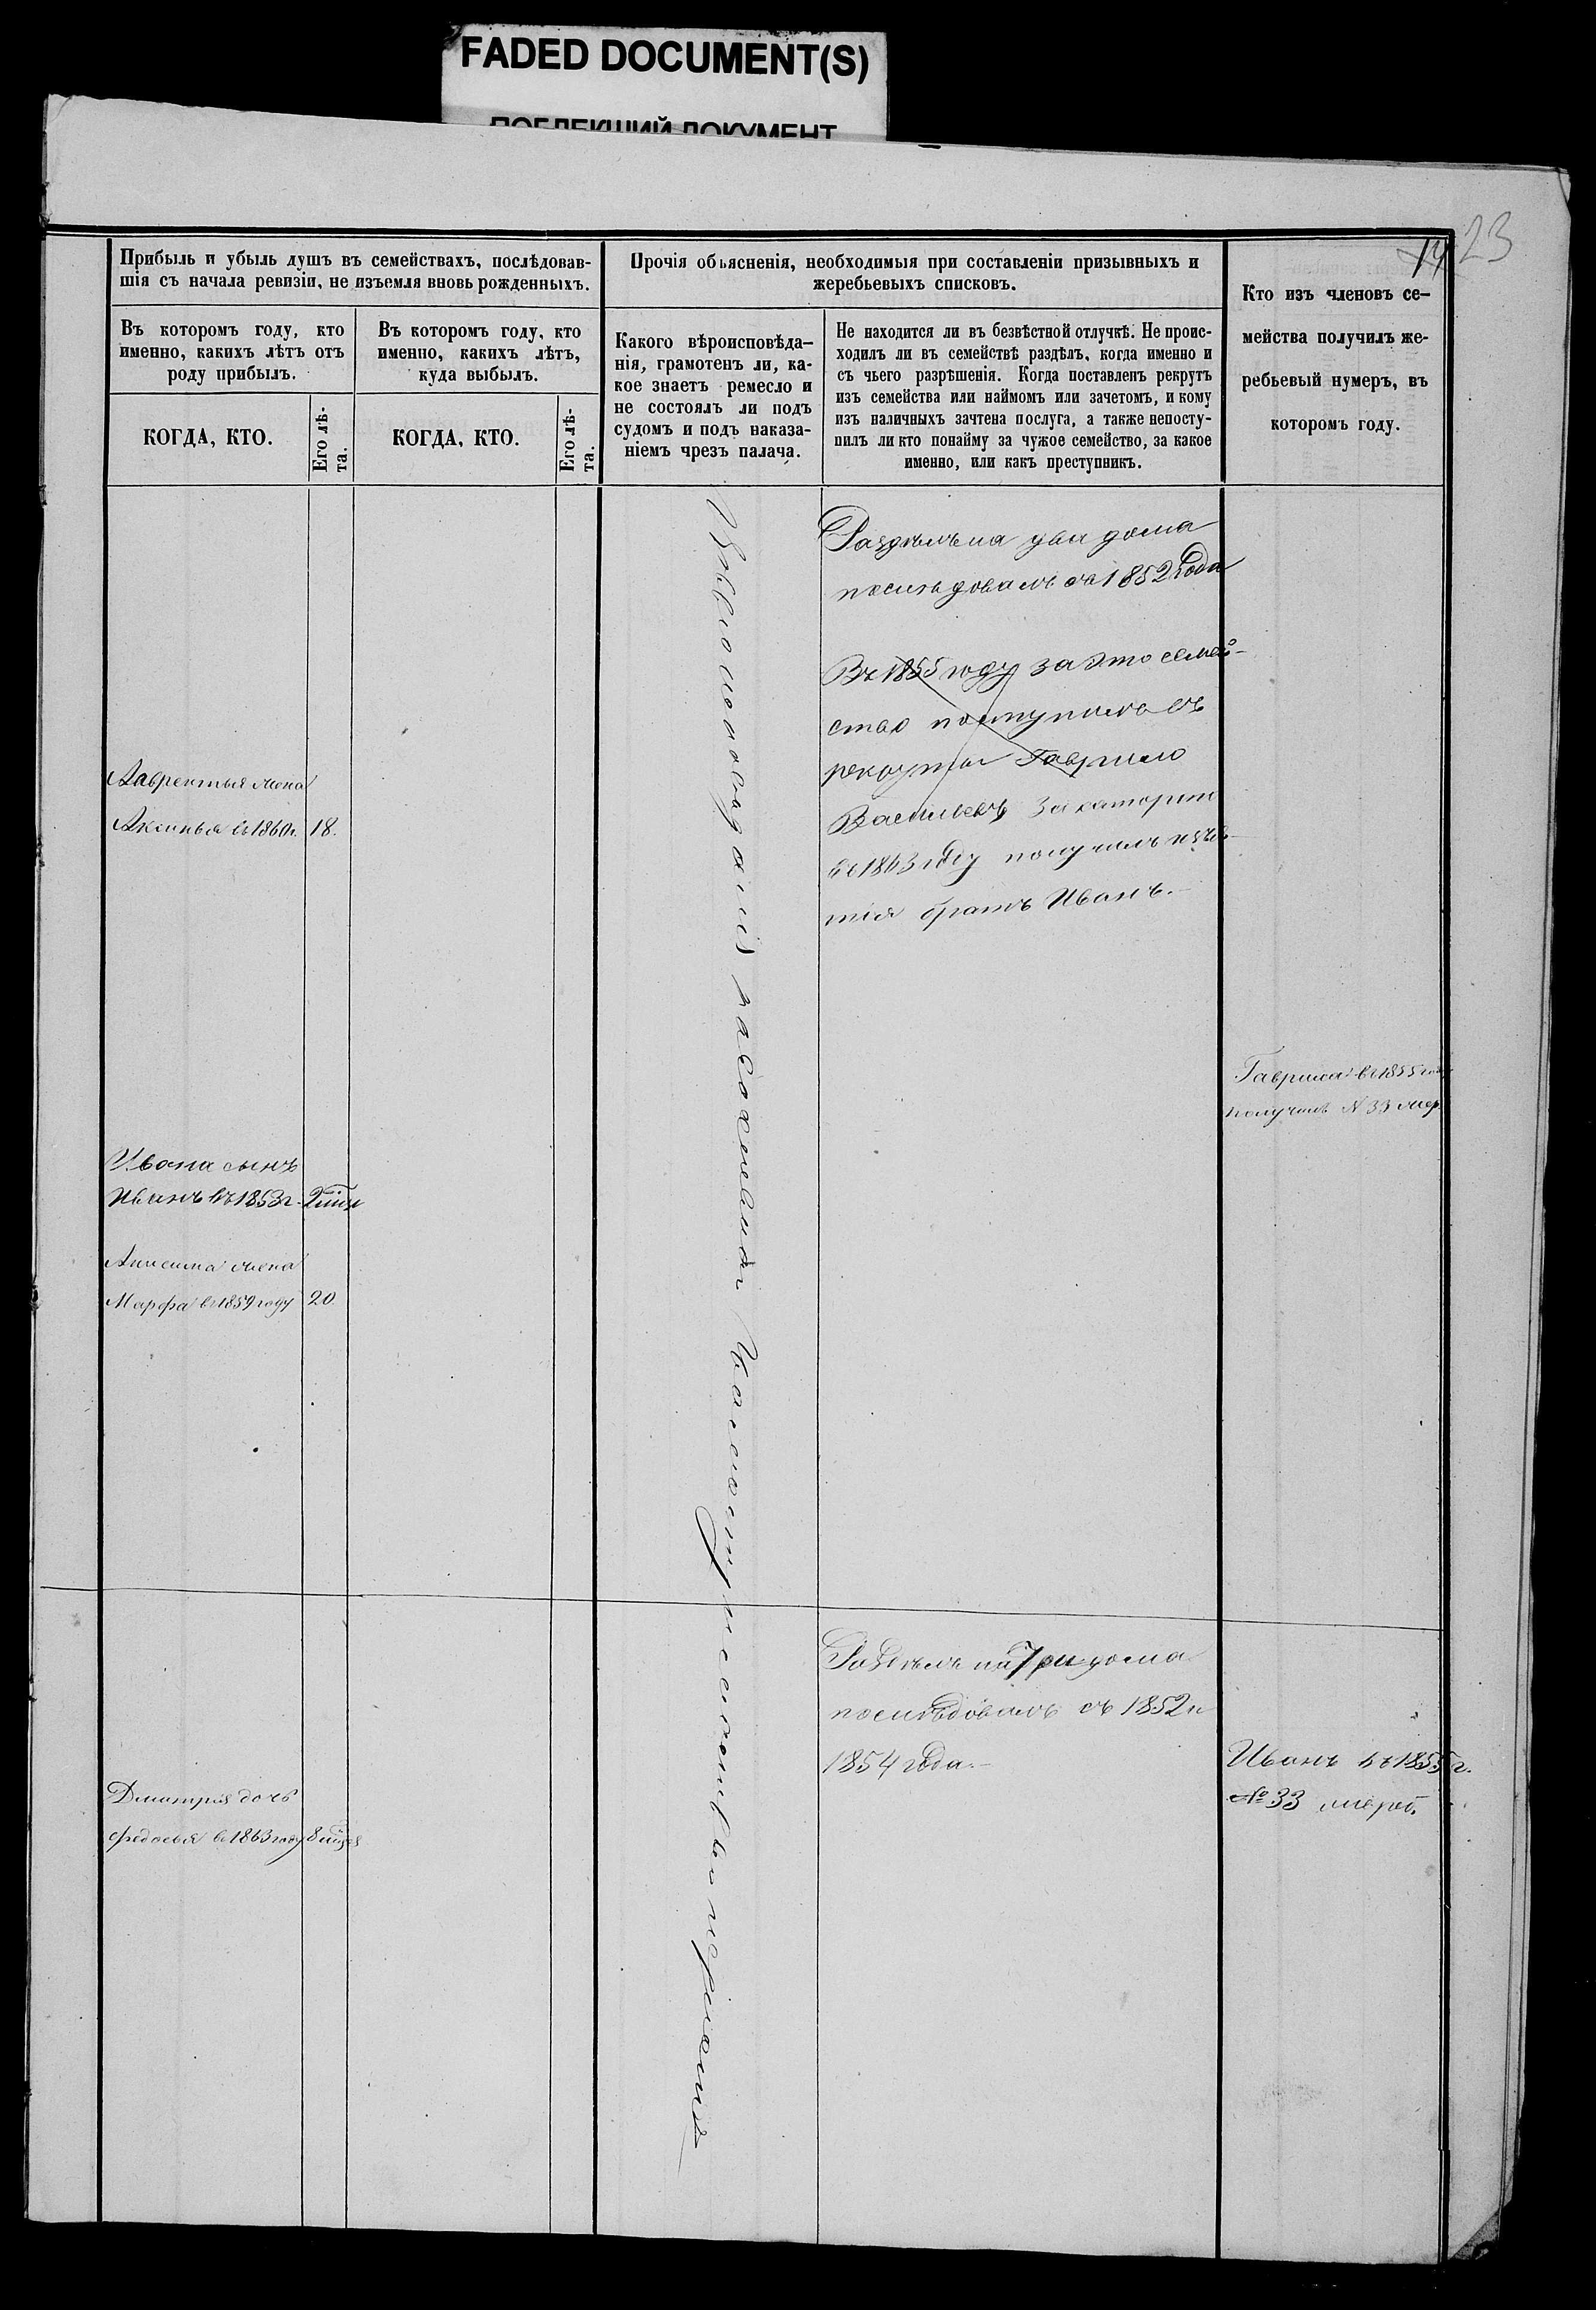 FADED DOCUMENT(S)
ПОБЛЕКШИЙ ДОКУМЕНТ
14
23
Прибыль и убыль душъ въ семействахъ, послѣдовав-
шія съ начала ревизіи, не изъемля вновь рожденныхъ.
Въ которомъ году, кто
именно, какихъ лѣтъ отъ
роду прибылъ.
КОГДА, КТО.
Его лѣ-
та.
Въ которомъ году, кто
именно, какихъ лѣтъ,
куда выбылъ.
КОГДА, КТО.
Его лѣ-
та.
Прочія объясненія, необходимыя при составленіи призывныхъ и
жеребьевыхъ списковъ.
Какого вѣроисповѣда-
нія, грамотенъ ли, ка-
кое знаетъ ремесло и
не состоялъ ли подъ
судомъ и подъ наказа-
ніемъ чрезъ палача.
Не находится ли въ безвѣстной отлучкѣ. Не проис-
ходилъ ли въ семействѣ раздѣлъ, когда именно и
съ чьего разрѣшенія. Когда поставленъ рекрутъ
изъ семейства или наймомъ или зачетомъ, и кому
изъ наличныхъ зачтена послуга, а также непосту-
пилъ ли кто понайму за чужое семейство, за какое
именно, или какъ преступникъ.
Кто изъ членовъ се-
мейства получилъ же-
ребьевый нумеръ, въ
которомъ году.
Лаврентья жена
Аксинья въ 1860 г. 18.
Ивана сынъ
Иванъ въ 1853 г.
Анисима жена
Марфа въ 1859 году 20
Дмитрія дочь
Федосья въ 1863 году
Вѣроисповѣданія
Раздѣлъ на два дома
послѣдовалъ съ 1852 Года
Въ 1855 году за это семей-
ство поступилъ въ
рекруты Гаврило
Васильевъ за которого
въ 1863 году получилъ
братъ Иванъ.
Раздѣлъ на Три дома
послѣдовалъ съ 1852 и
1854 года.
Гаврила въ 1855 году
получилъ № 33 жер.
Иванъ въ 1855 г.
№ 33 жереб.